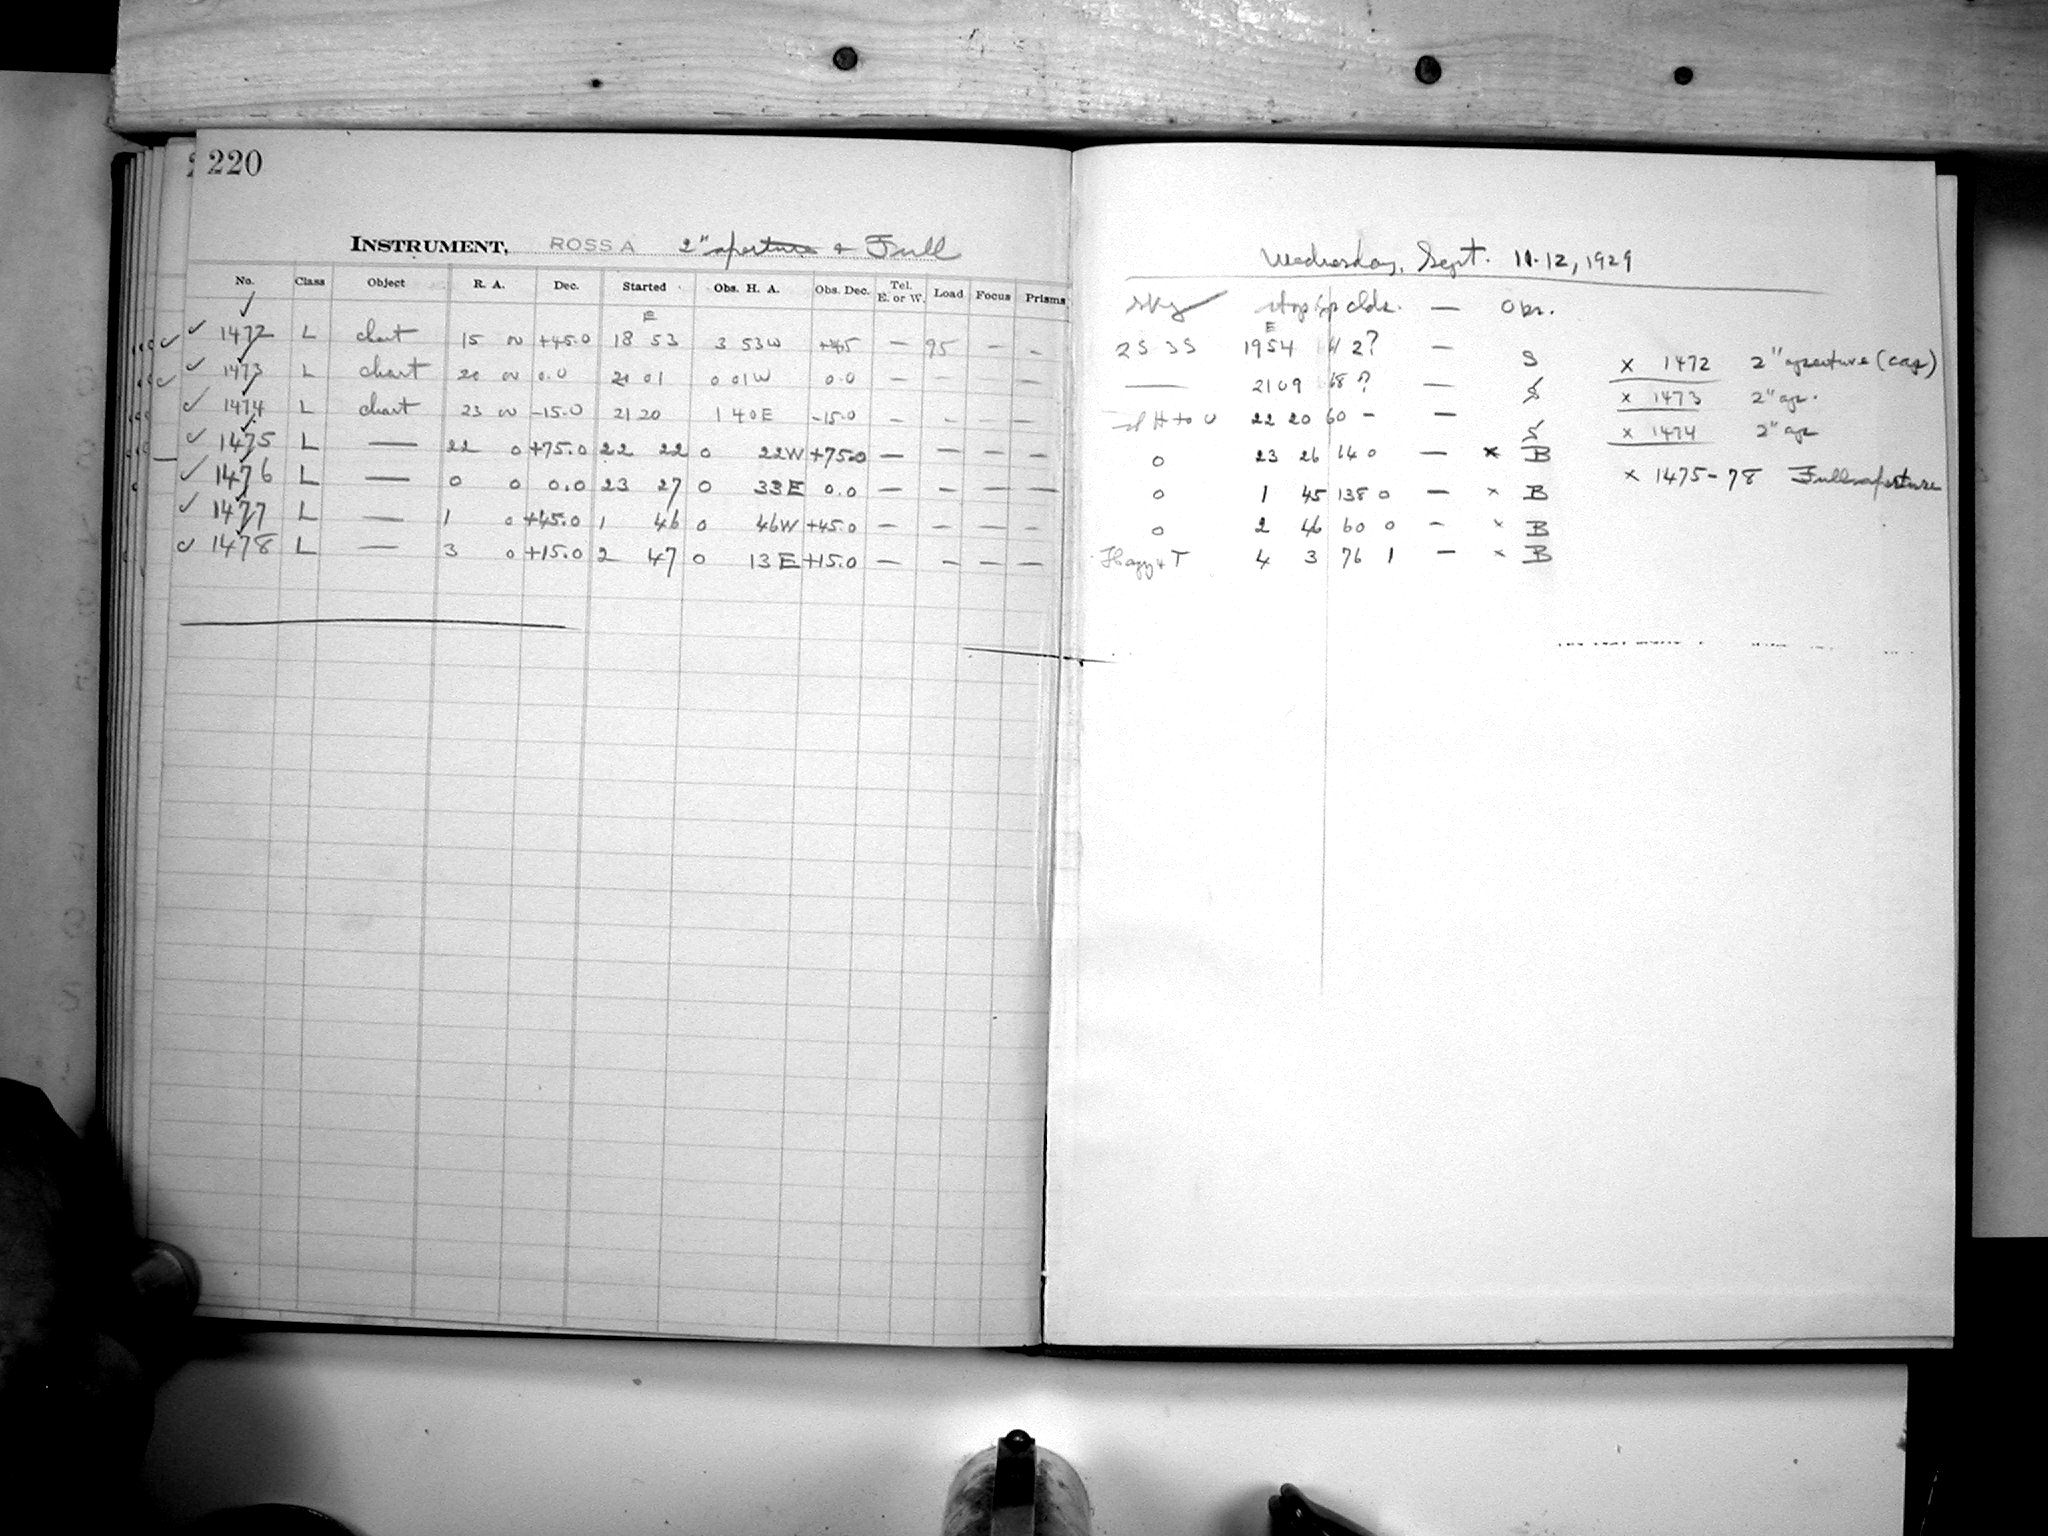 220
INSTRUMENT, ROSS A 2" aperture & Full
No. Class Object R. A. Dec. Started Obs. H. A. Obs. Dec. Tel. E. or W. Load Focus Prisms
E
1472 L chart 15 0 +45.0 18 53 3 53W +45 — 95 — —
1473 L chart 20 0 0.0 20 01 0 01W 0.0 — — — —
1474 L chart 23 0 -15.0 21 20 1 40E -15.0 — — — —
1475 L — 22 0 +75.0 22 22 0 22W +75.0 — — — —
1476 L — 0 0 0.0 23 27 0 33E 0.0 — — — —
1477 L — 1 0 +45.0 1 46 0 46W +45.0 — — — —
1478 L — 3 0 +15.0 2 47 0 13E +15.0 — — — —
Wednesday, Sept. 11-12, 1929
Sky stop clds. — Obs.
E
2S 3S 1954 2? — S x 1472 2" aperture (cap)
— 2109 68 ? — S x 1473 2" ap.
H to 0 22 20 60 - — S x 1474 2" ap
0 23 26 64 0 — x B x 1475-78 Full aperture
0 1 45 138 0 — x B
0 2 46 60 0 — x B
Hazy & T 4 3 76 1 — x B